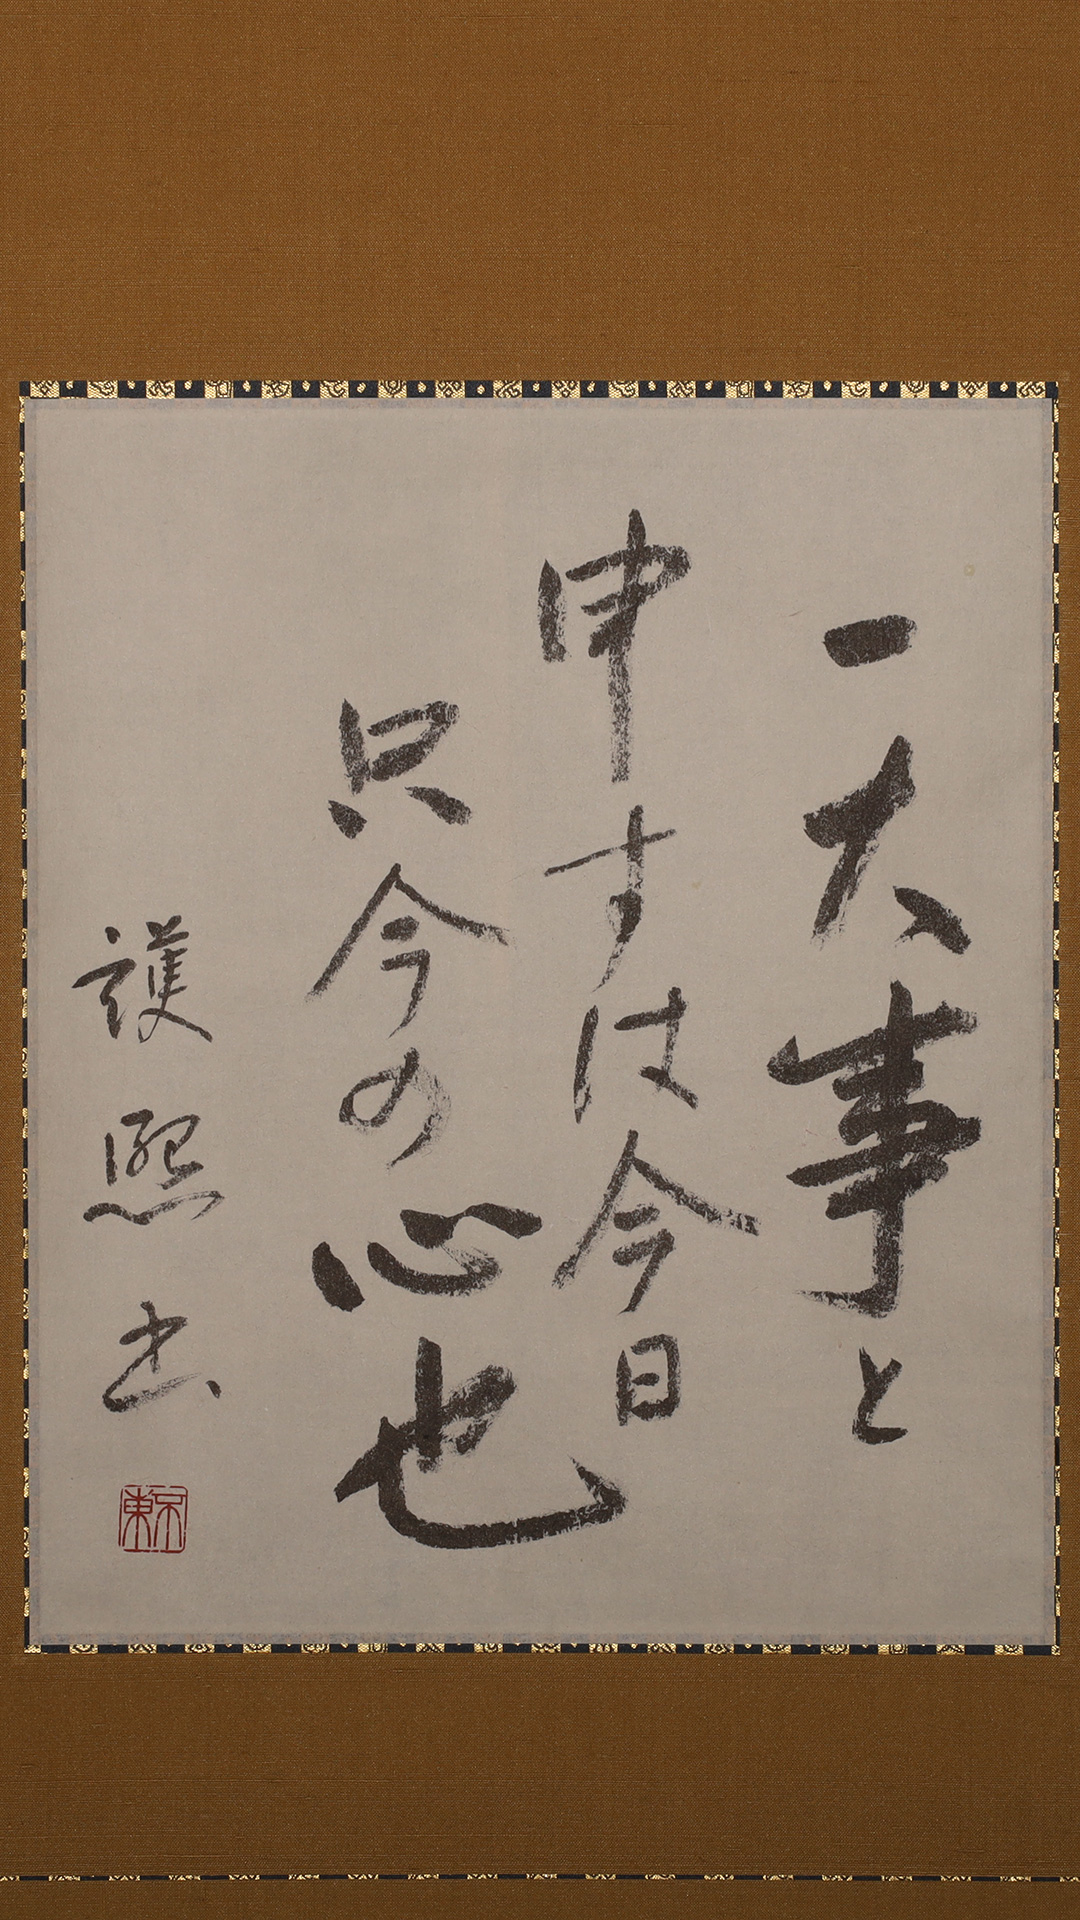 一大事と
申すは今日
只今の心也
護熙書
東京